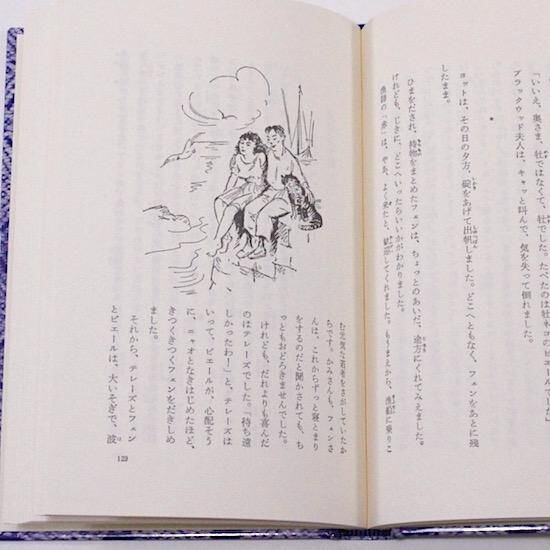 「いいえ、奥さま、牡ではなくて、牡でした。たべたのは牡ネコのピエールでした」
ブラックウッド夫人は、キャッと叫んで、気を失って倒れました。
*
ヨットは、その日の夕方、碇をあげて出帆しました。どこへともなく、フェンをあとに残
したまま。
ひまをだされ、持物をまとめたフェンは、ちょっとのあいだ、途方にくれてみえます。
けれども、じきに、どこへいったらいいかがわかりました。
漁師の「弟」は、やあ、よく来たと、歓迎してくれました。もうまえから、漁船に乗りこ
む元気な若者をさがしていたか
らです。かみさんも、フェンさ
んは、これからずっと寝とまり
をするのだと聞かされても、ち
っともおどろきませんでした。
けれども、だれよりも喜んだ
のはテレーズでした。「待ち遠
しかったわ!」と、テレーズは
いって、ピエールが、心配そう
に、ニャオとなきはじめたほど、
きつくきつくフェンをだきしめ
ました。
それから、テレーズとフェン
とピエールは、大いそぎで、波
129